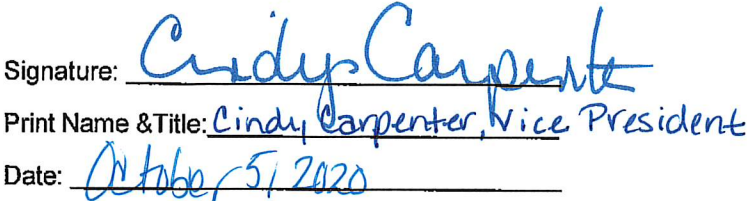 Signature: Cindy Carpenter
Print Name &Title: Cindy Carpenter, Vice President
Date: October 5, 2020